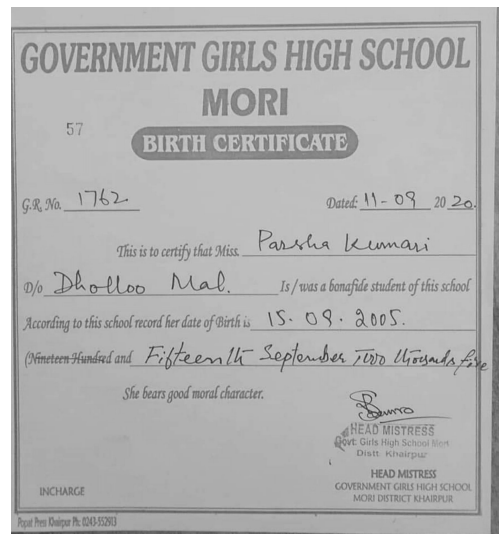 GOVERNMENT GIRLS HIGH SCHOOL
MORI
57
BIRTH CERTIFICATE
G.R. No. 1762 Dated: 11-09 20 20.
This is to certify that Miss. Parsha Kumari
D/o Dholloo Mal. Is / was a bonafide student of this school
According to this school record her date of Birth is 15.09.2005.
(Nineteen Hundred and Fifteenth September Two thousands five
She bears good moral character.
HEAD MISTRESS
Govt: Girls High School Mori
Distt. Khairpur
HEAD MISTRESS
INCHARGE GOVERNMENT GIRLS HIGH SCHOOL
MORI DISTRICT KHAIRPUR
Popat Press Khairpur Ph: 0243-552913